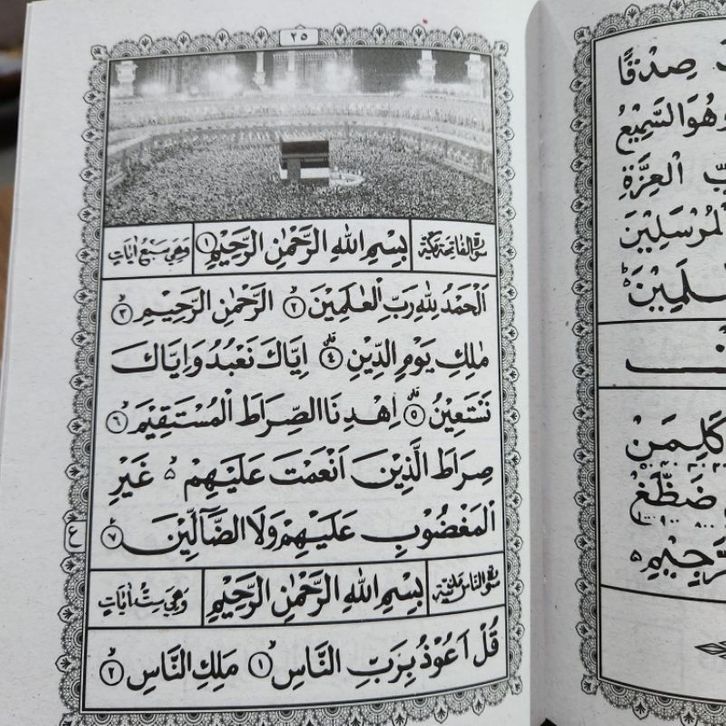 ٢٥
سورة الفاتحة مكية بِسْمِ اللهِ الرَّحْمٰنِ الرَّحِيْمِ ١ وَهِيَ سَبْعُ اٰيَاتٍ
اَلْحَمْدُ لِلّٰهِ رَبِّ الْعٰلَمِيْنَ ٢ الرَّحْمٰنِ الرَّحِيْمِ ٣
مٰلِكِ يَوْمِ الدِّيْنِ ٤ اِيَّاكَ نَعْبُدُ وَاِيَّاكَ
نَسْتَعِيْنُ ٥ اِهْدِنَا الصِّرَاطَ الْمُسْتَقِيْمَ ٦
صِرَاطَ الَّذِيْنَ اَنْعَمْتَ عَلَيْهِمْ ە غَيْرِ
الْمَغْضُوْبِ عَلَيْهِمْ وَلَا الضَّآلِّيْنَ ٧
ع
سورة الناس مدنية بِسْمِ اللهِ الرَّحْمٰنِ الرَّحِيْمِ وَهِيَ سِتُّ اٰيَاتٍ
قُلْ اَعُوْذُ بِرَبِّ النَّاسِ ١ مَلِكِ النَّاسِ ٢
صِدْقًا
وَهُوَ السَّمِيْعُ
الْعِزَّةِ
الْمُرْسَلِيْنَ